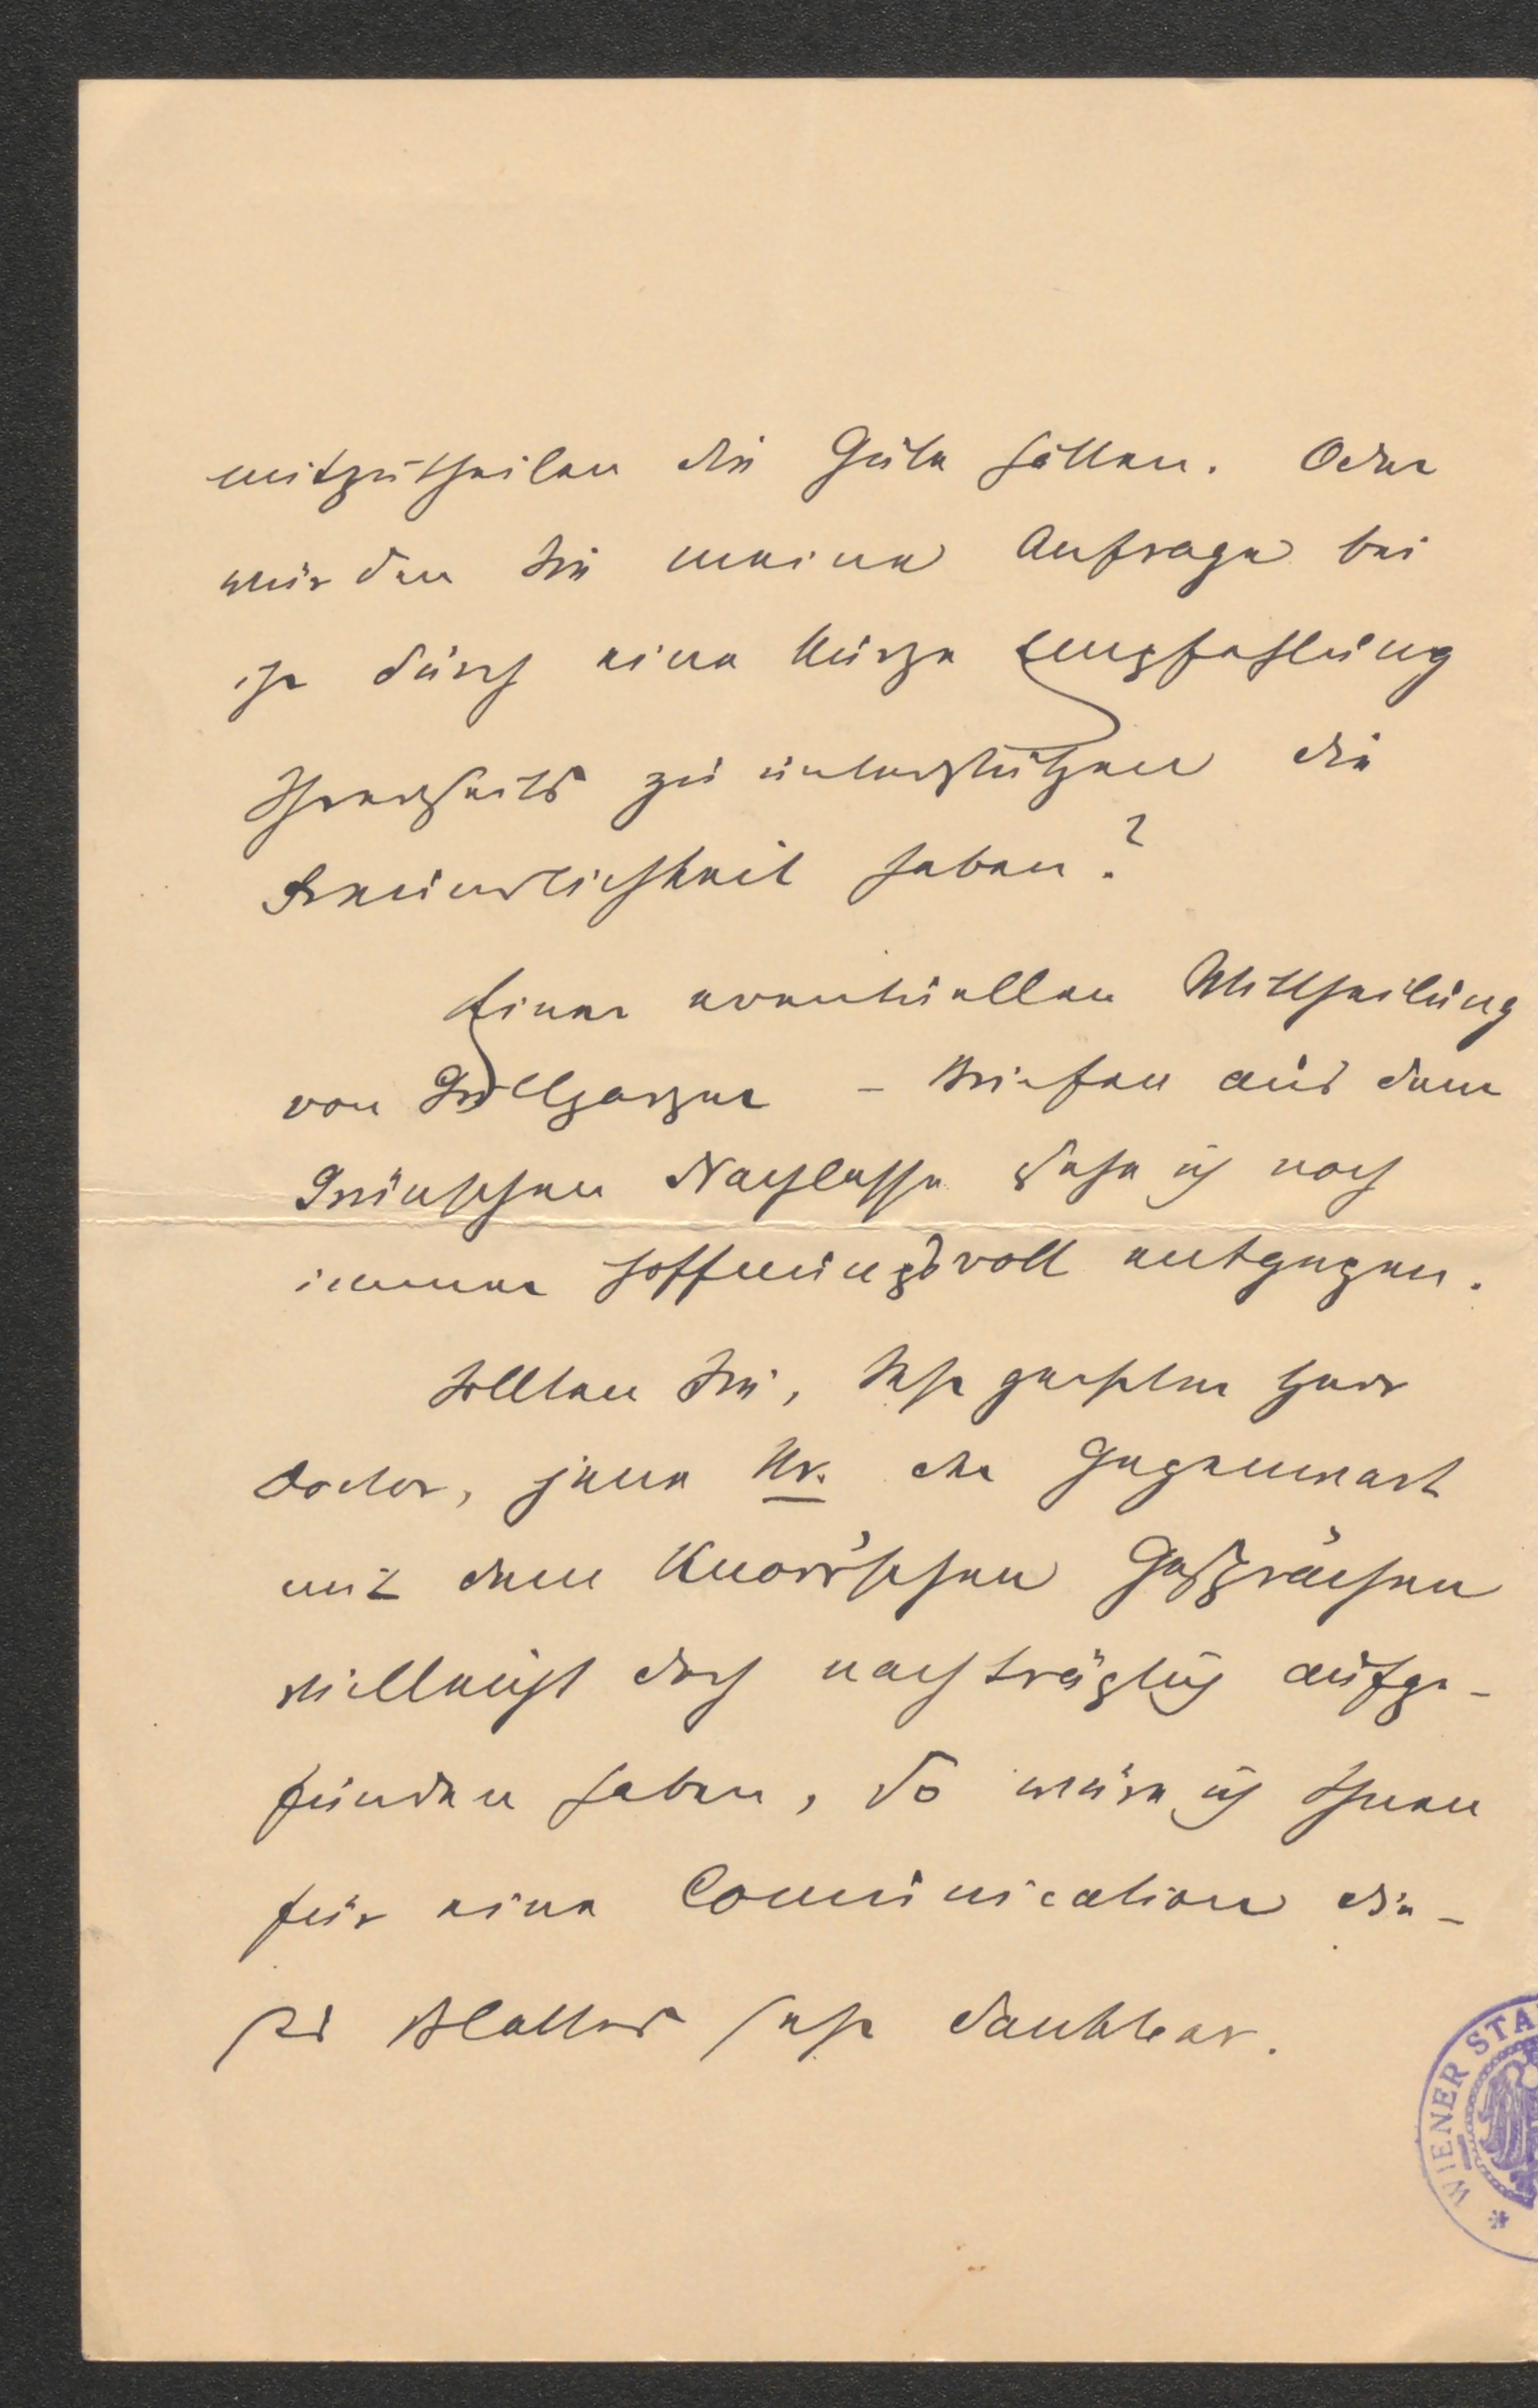 mitzutheilen die Güte hätten. Oder
würden Sie meine Anfrage bei
ihr durch eine kurze Empfehlung
Ihrerseits zu unterstützen die
Freundlichkeit haben?
Einer eventuellen Mittheilung
von Grillparzer - Briefen aus dem
Grün'schen Nachlasse sehe ich noch
immer hoffnungsvoll entgegen.
Sollten Sie, sehr geehrter Herr
Doctor, jene Nr. der Gegenwart
mit den Knorr'schen Gesprächen
vielleicht doch nachträglich aufge-
funden haben, so wäre ich Ihnen
für eine Communication die-
ses Blattes sehr dankbar.
* WIENER STA